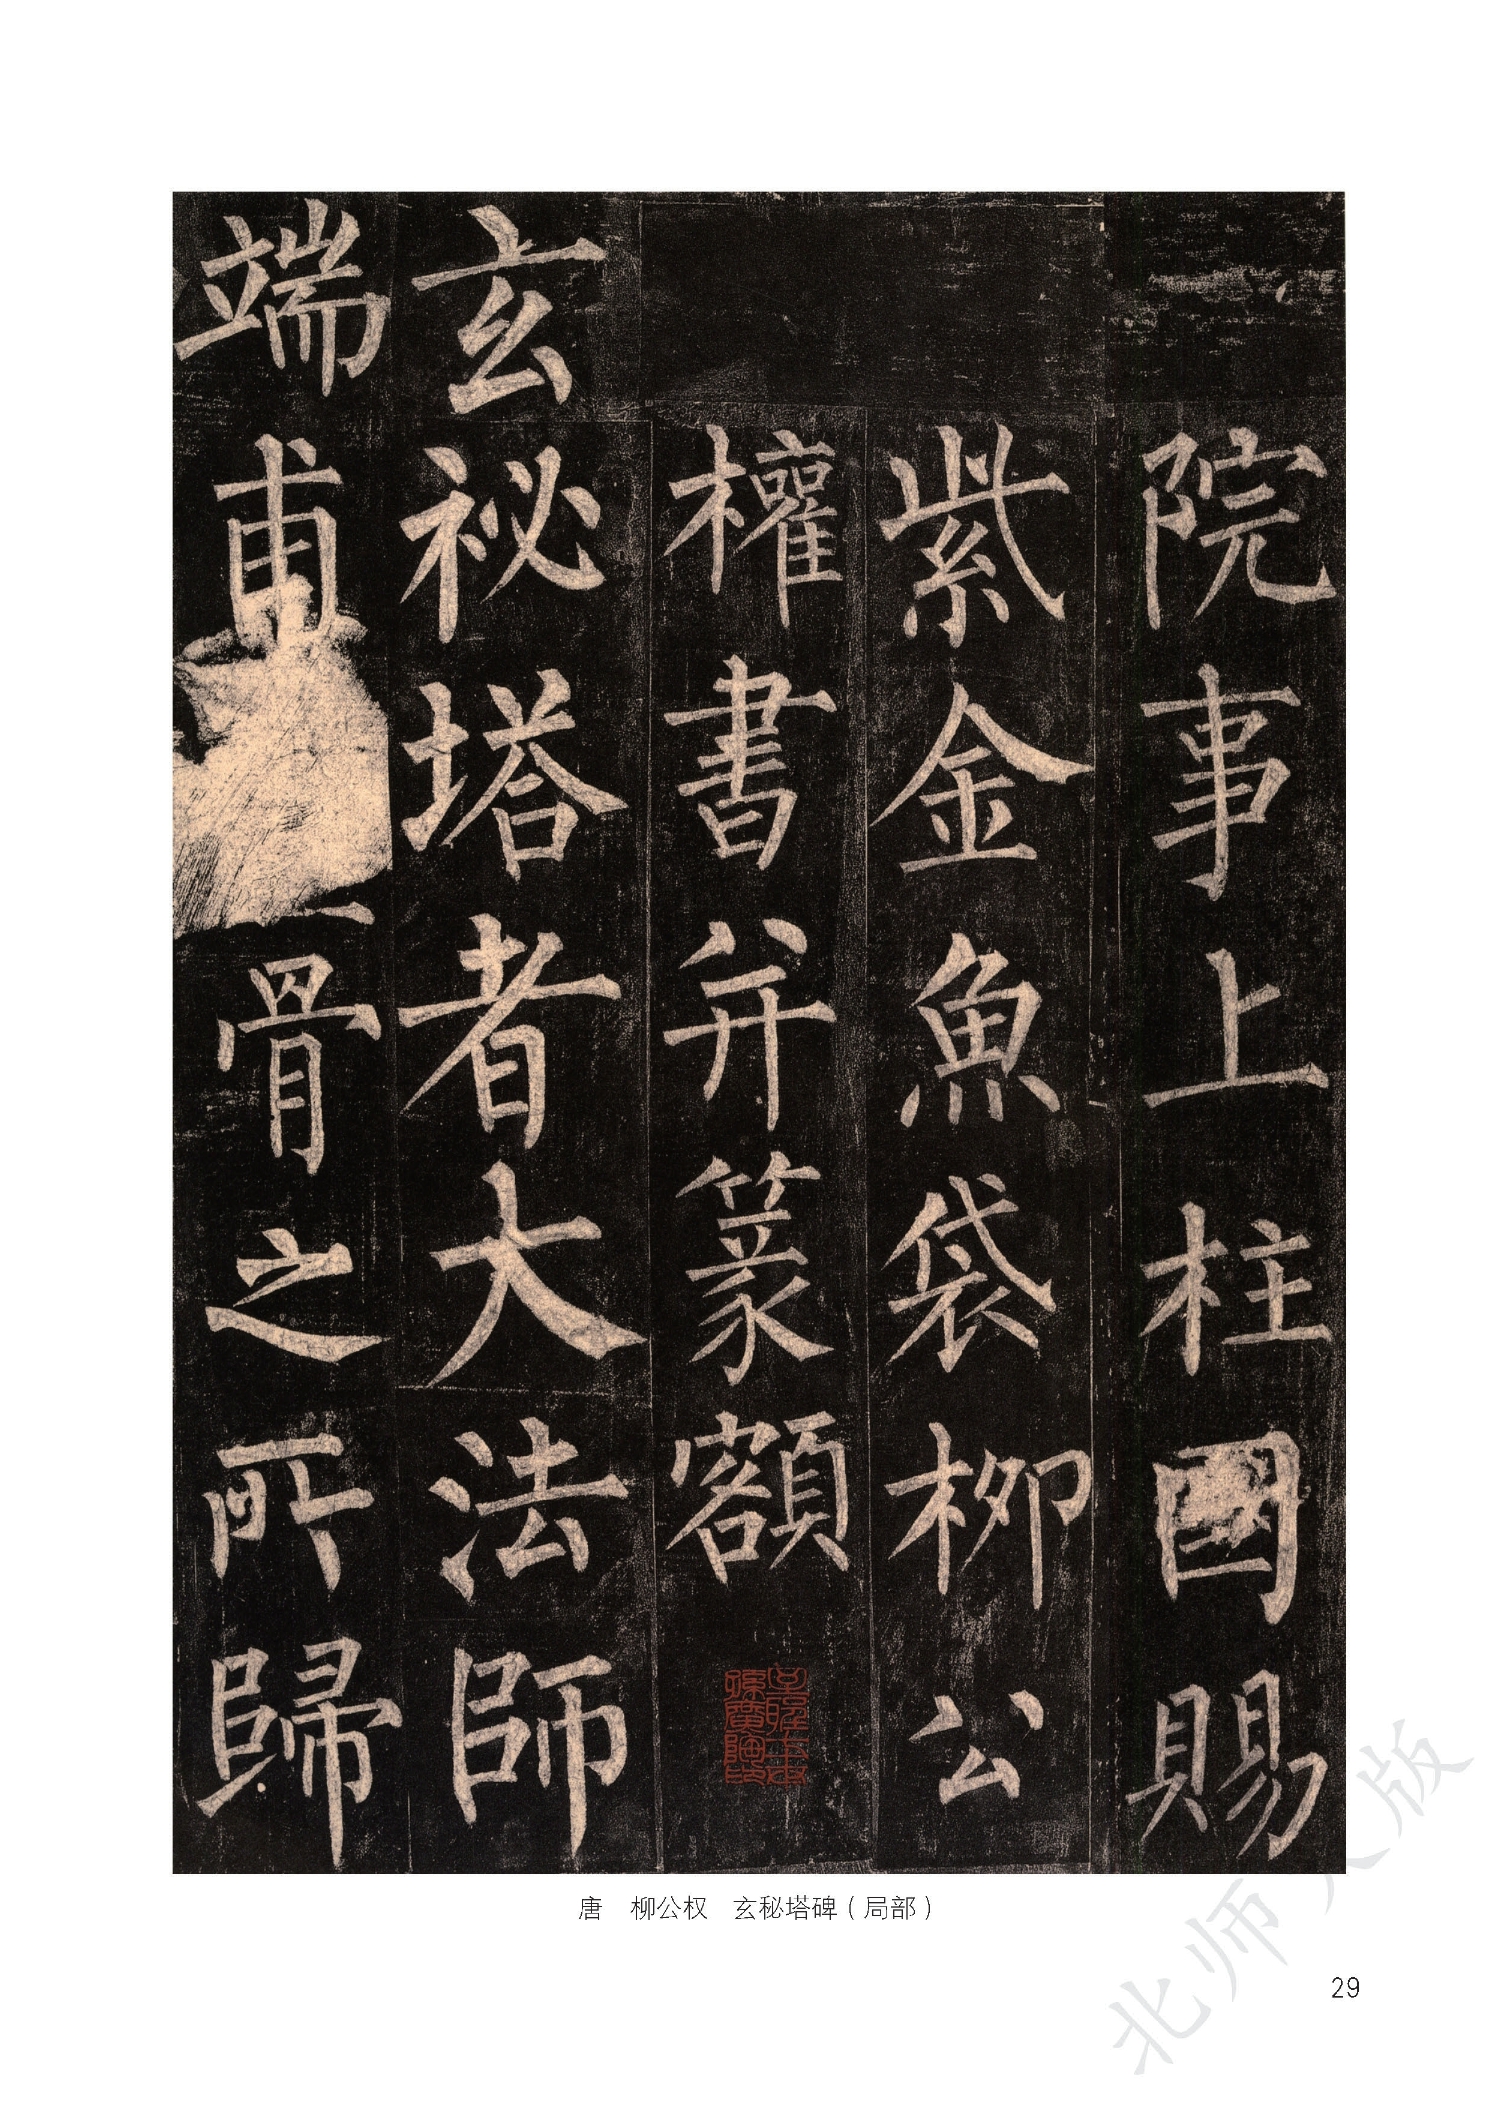 院事上柱國賜
紫金魚袋柳公
權書并篆額
玄祕塔者大法師
端甫骨之所歸
唐 柳公权 玄秘塔碑（局部）
29
北师大版